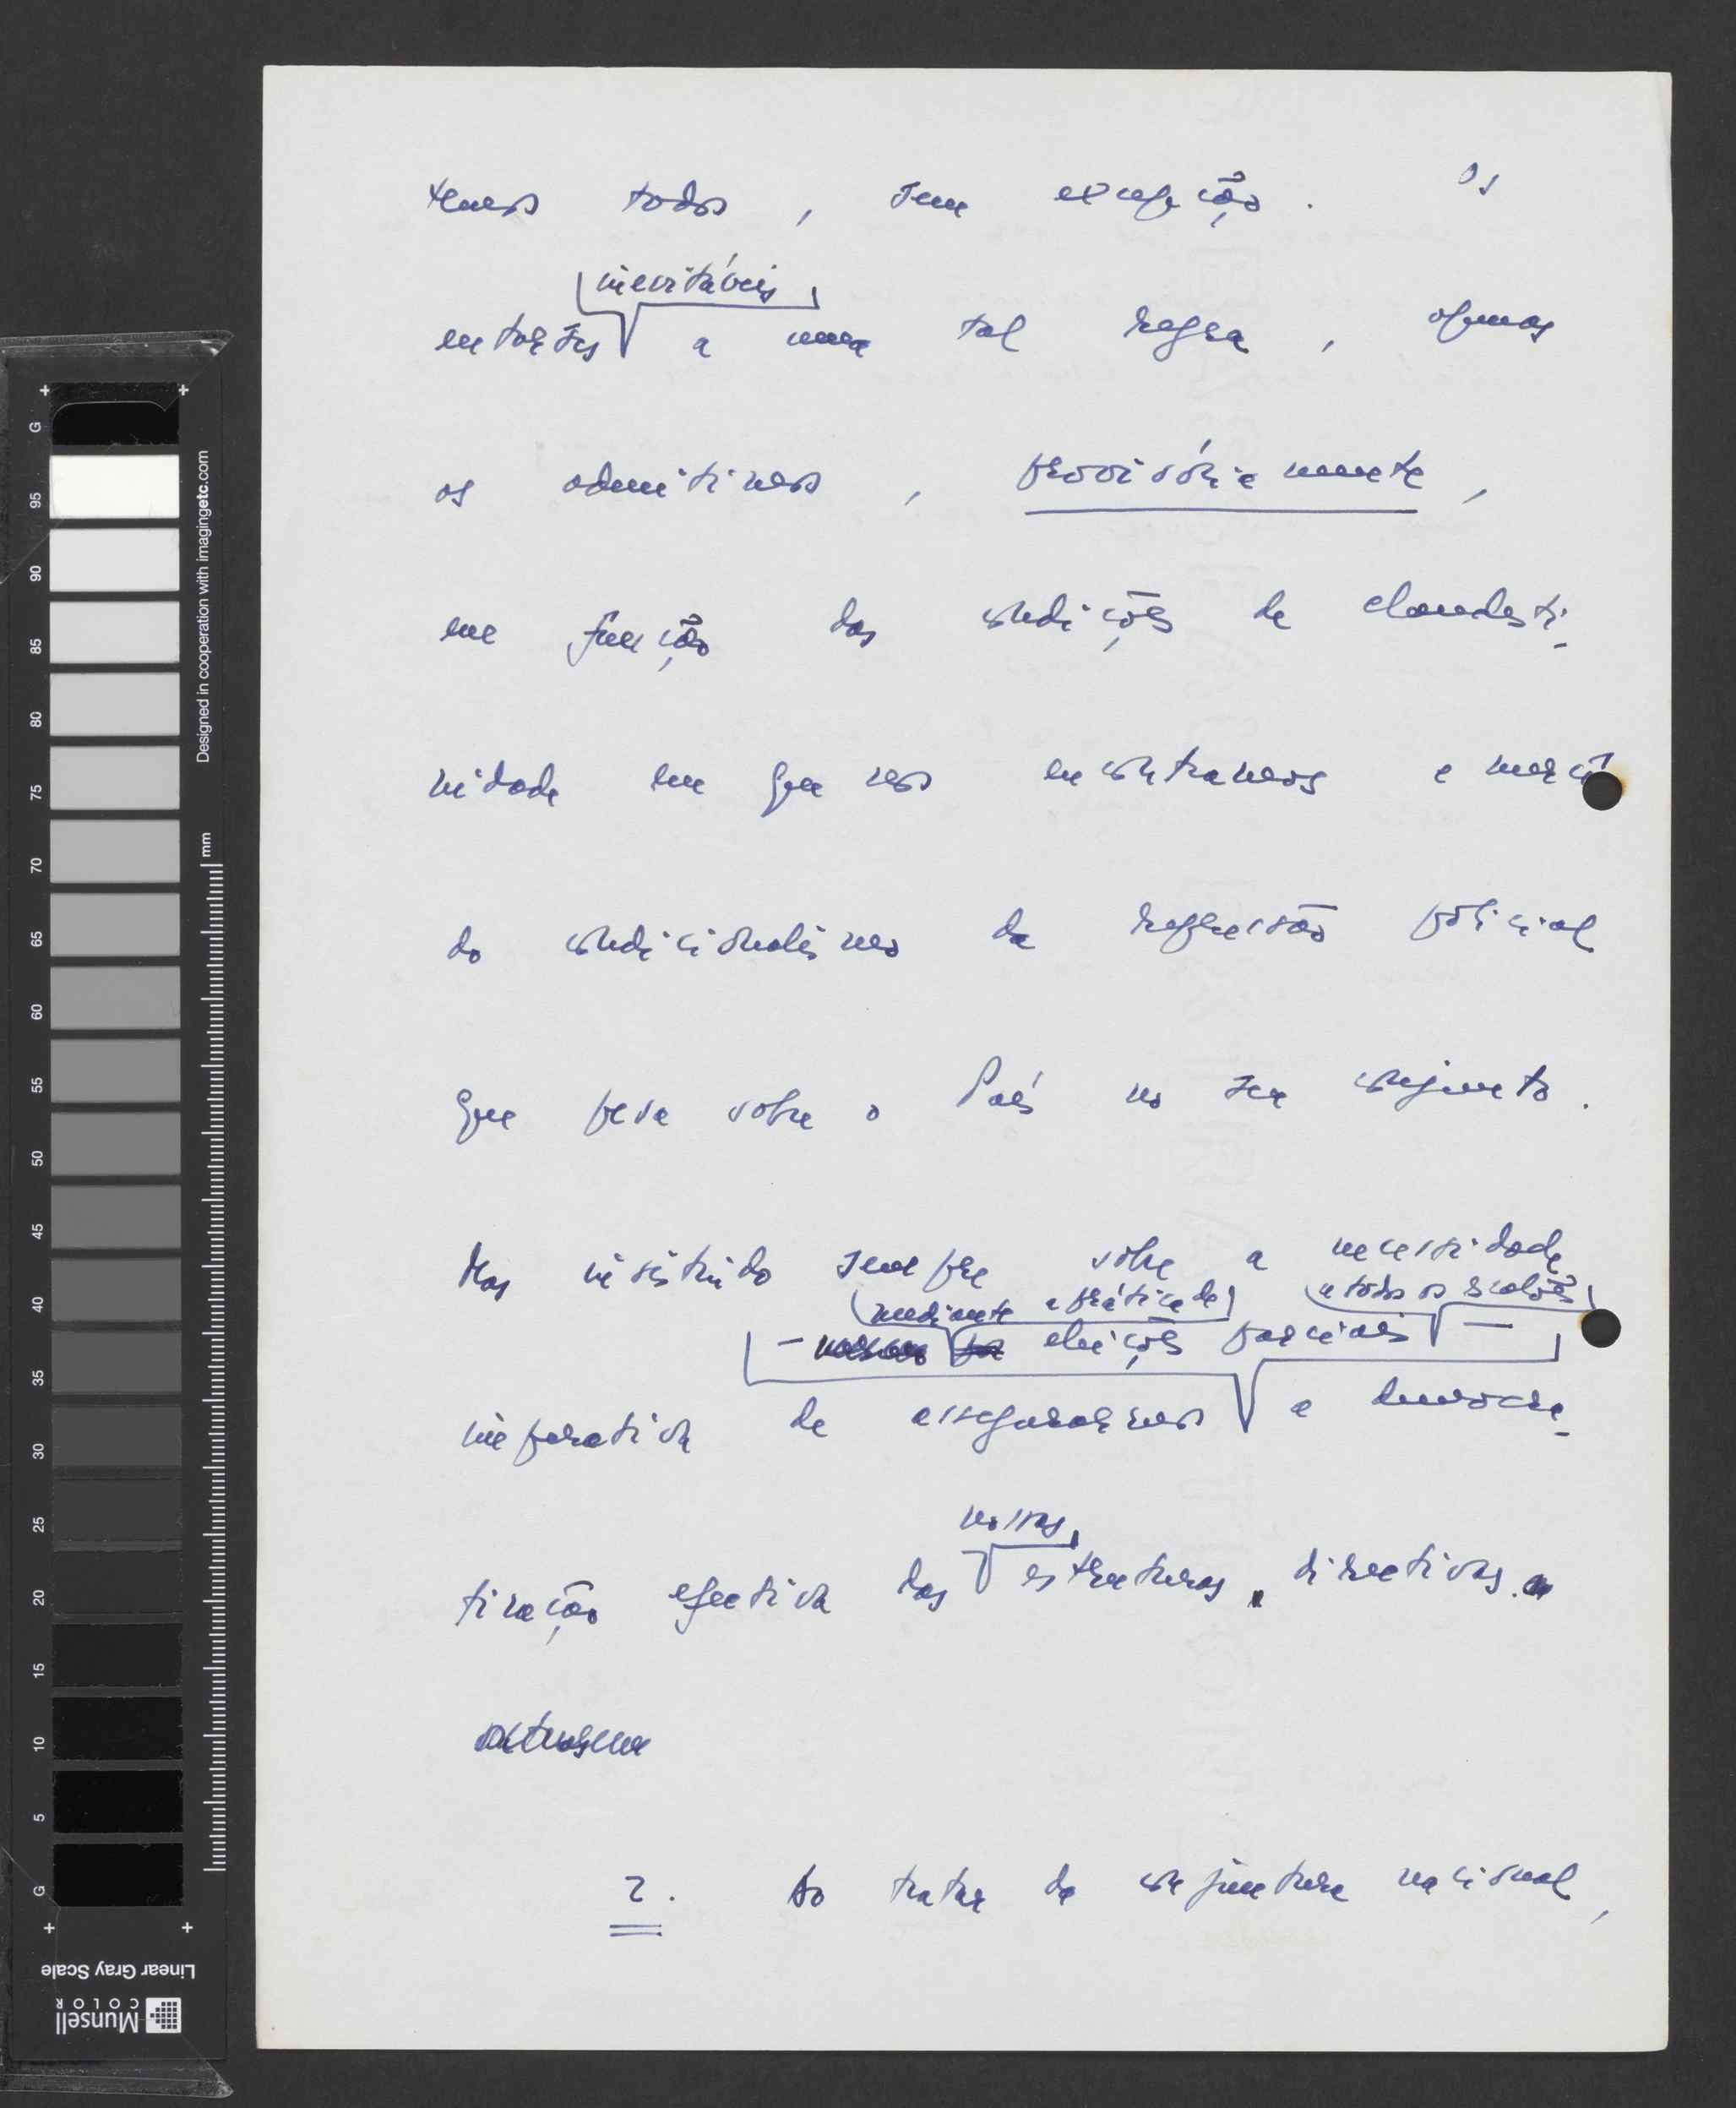 temos todos, sem excepção. Os
inevitáveis
entorses a uma tal regra, apenas
os admitimos, provisòriamente,
em função das condições de clandesti-
nidade em que nos encontramos e mercê
do condicionalismo da repressão policial
que pesa sobre o País no seu conjunto.
Mas insistindo sempre sobre a necessidade
mediante a prática de a todos os escalões
— eleições parciais —
imperativa de assegurarmos a democra-
nossas
tização efectiva das estruturas directivas.
2. Ao tratar da conjuntura nacional,
G 95 90 85 80 75 70 65 60 55 50 45 40 35 30 25 20 15 10 5 G
Designed in cooperation with imagingetc.com
mm
Linear Gray Scale
Munsell
COLOR